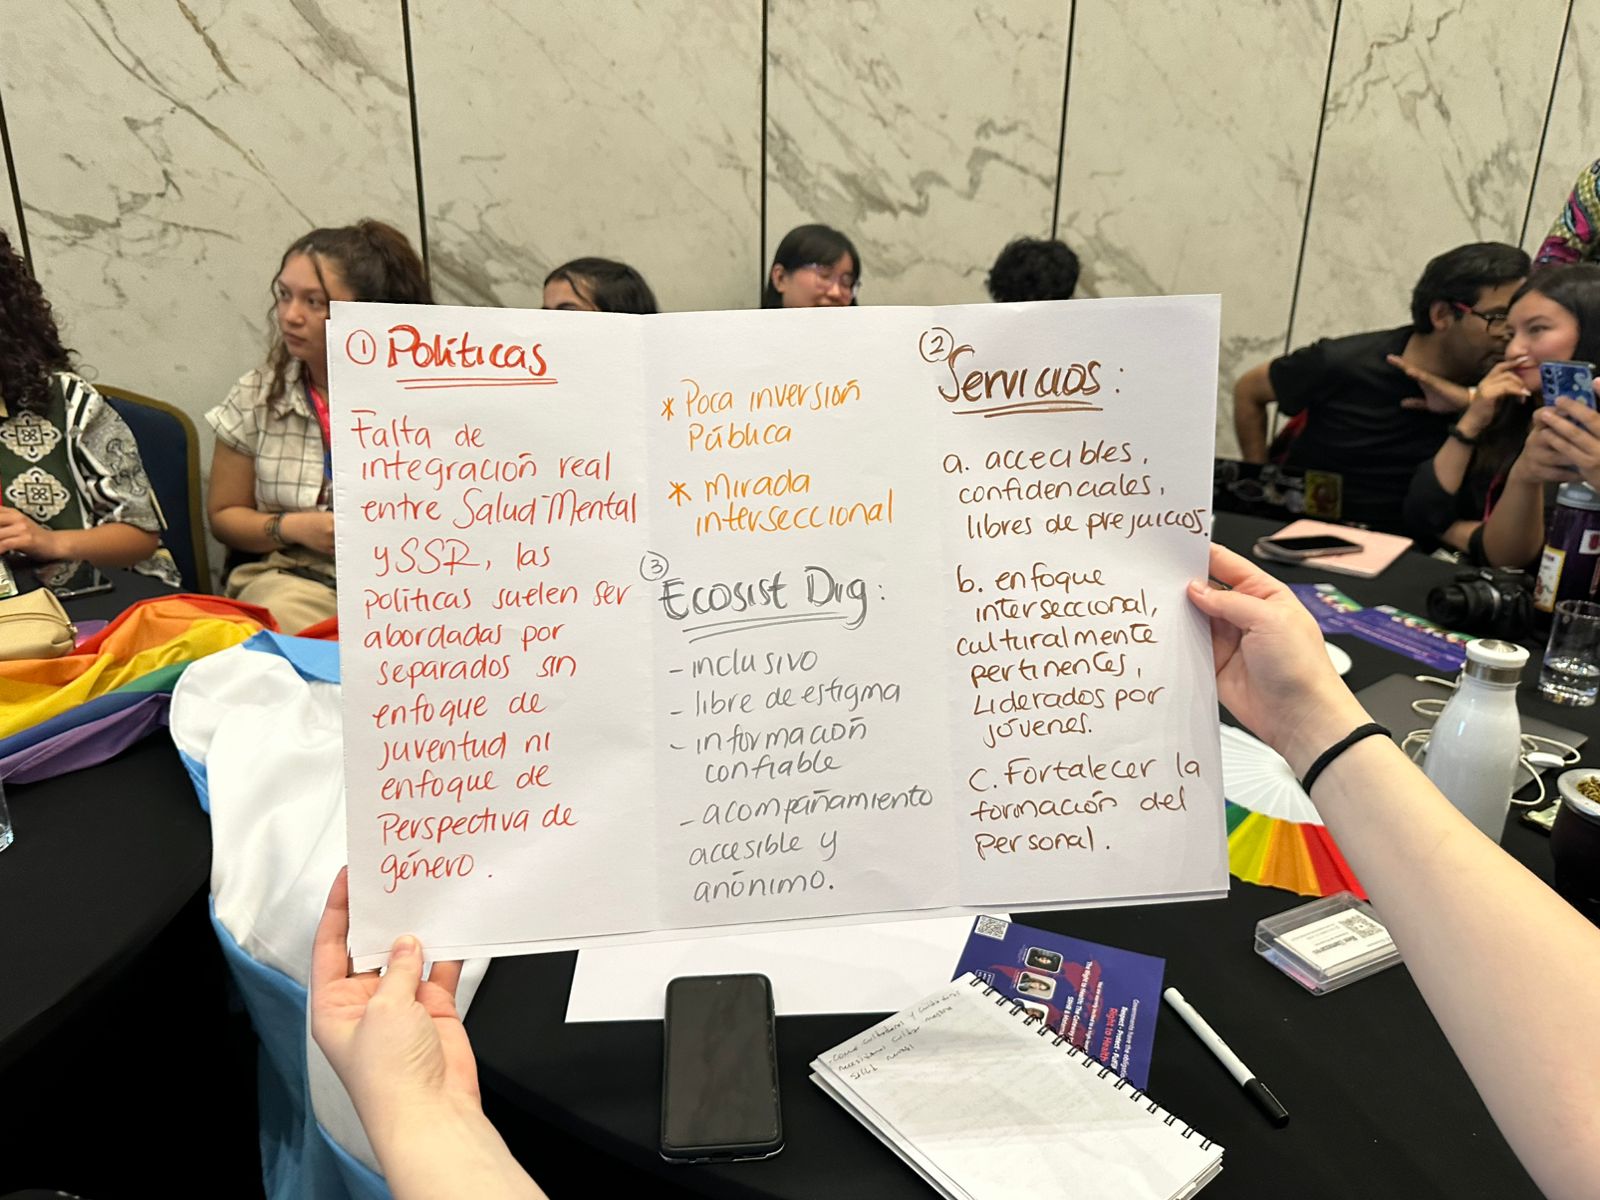 ① Políticas
Falta de
integración real
entre Salud Mental
y SSR, las
políticas suelen ser
abordadas por
separados sin
enfoque de
juventud ni
enfoque de
Perspectiva de
género.
* Poca inversión
Pública
* mirada
interseccional
③
Ecosist Dig:
- inclusivo
- libre de estigma
- información
confiable
- acompañamiento
accesible y
anónimo.
②
Servicios:
a. accecibles,
confidenciales,
libres de prejuicios.
b. enfoque
interseccional,
culturalmente
pertinentes,
Liderados por
jóvenes.
C. Fortalecer la
formación del
Personal.
Right to Health